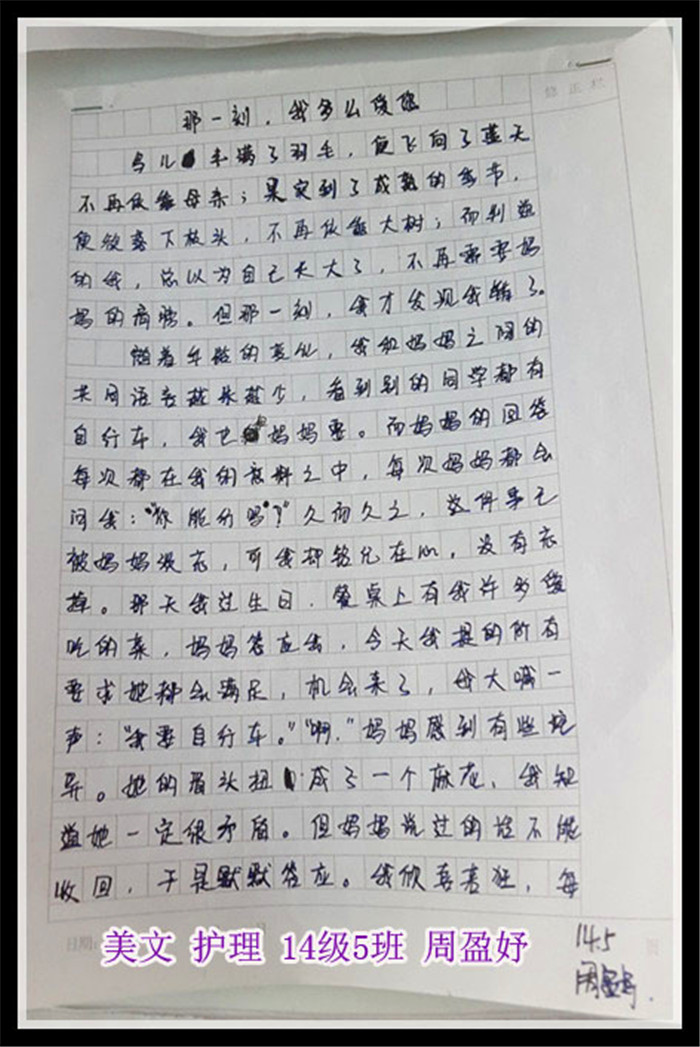 修正栏
那一刻，我多么爱您
鸟儿丰满了羽毛，便飞向了蓝天
不再依偎母亲；果实到了成熟的季节，
便毅落下枝头，不再依偎大树；而到
的我，总以为自己长大了，不再需要妈
妈的肩膀。但那一刻，我才发现我错了。
随着年龄的变化，我和妈妈之间的
共同语言越来越少，看到别的同学都有
自行车，我也妈妈要。而妈妈的回答
每次都在我的意料之中，每次妈妈都会
问我："你能行吗？"久而久之，这件事已
被妈妈淡忘，可我却铭记在心，没有忘
掉。那天我过生日，餐桌上有我许多爱
吃的菜，妈妈答应我，今天我提的所有
要求她都会满足，机会来了，我大喊一
声："我要自行车。""啊，"妈妈感到有些诧
异。她的眉头扭成了一个麻花，我知
道她一定很矛盾。但妈妈说过的话不能
收回，于是默默答应。我欣喜若狂，每
日期:
美文 护理 14级5班 周盈妤
14.5
周盈妤